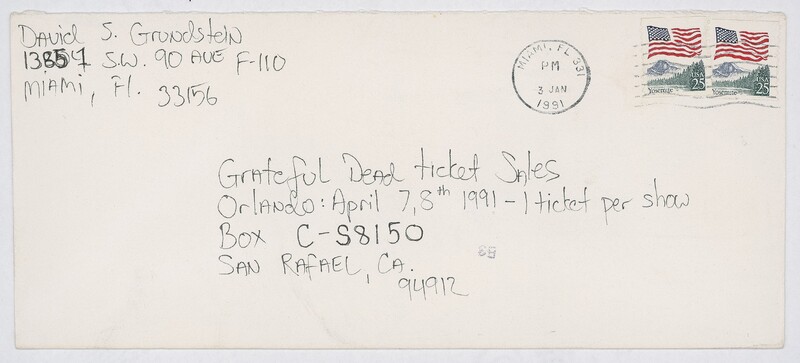 David S. Grundstein
S.W. 90 AVE F-110
MIAMI, Fl. 33156
MIAMI, FL 331
PM
3 JAN
1991
Yosemite
USA
25
Yosemite
USA
25
Grateful Dead ticket Sales
Orlando: April 7,8th 1991 - 1 ticket per show
Box C-S8150
SAN RAFAEL, CA.
94912